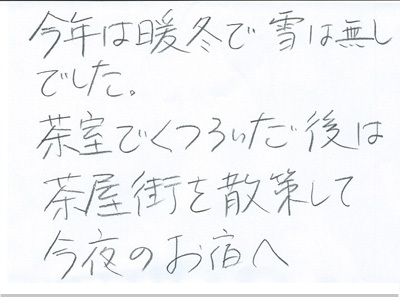 今年は暖冬で雪は無し
でした。
茶室でくつろいだ後は
茶屋街を散策して
今夜のお宿へ